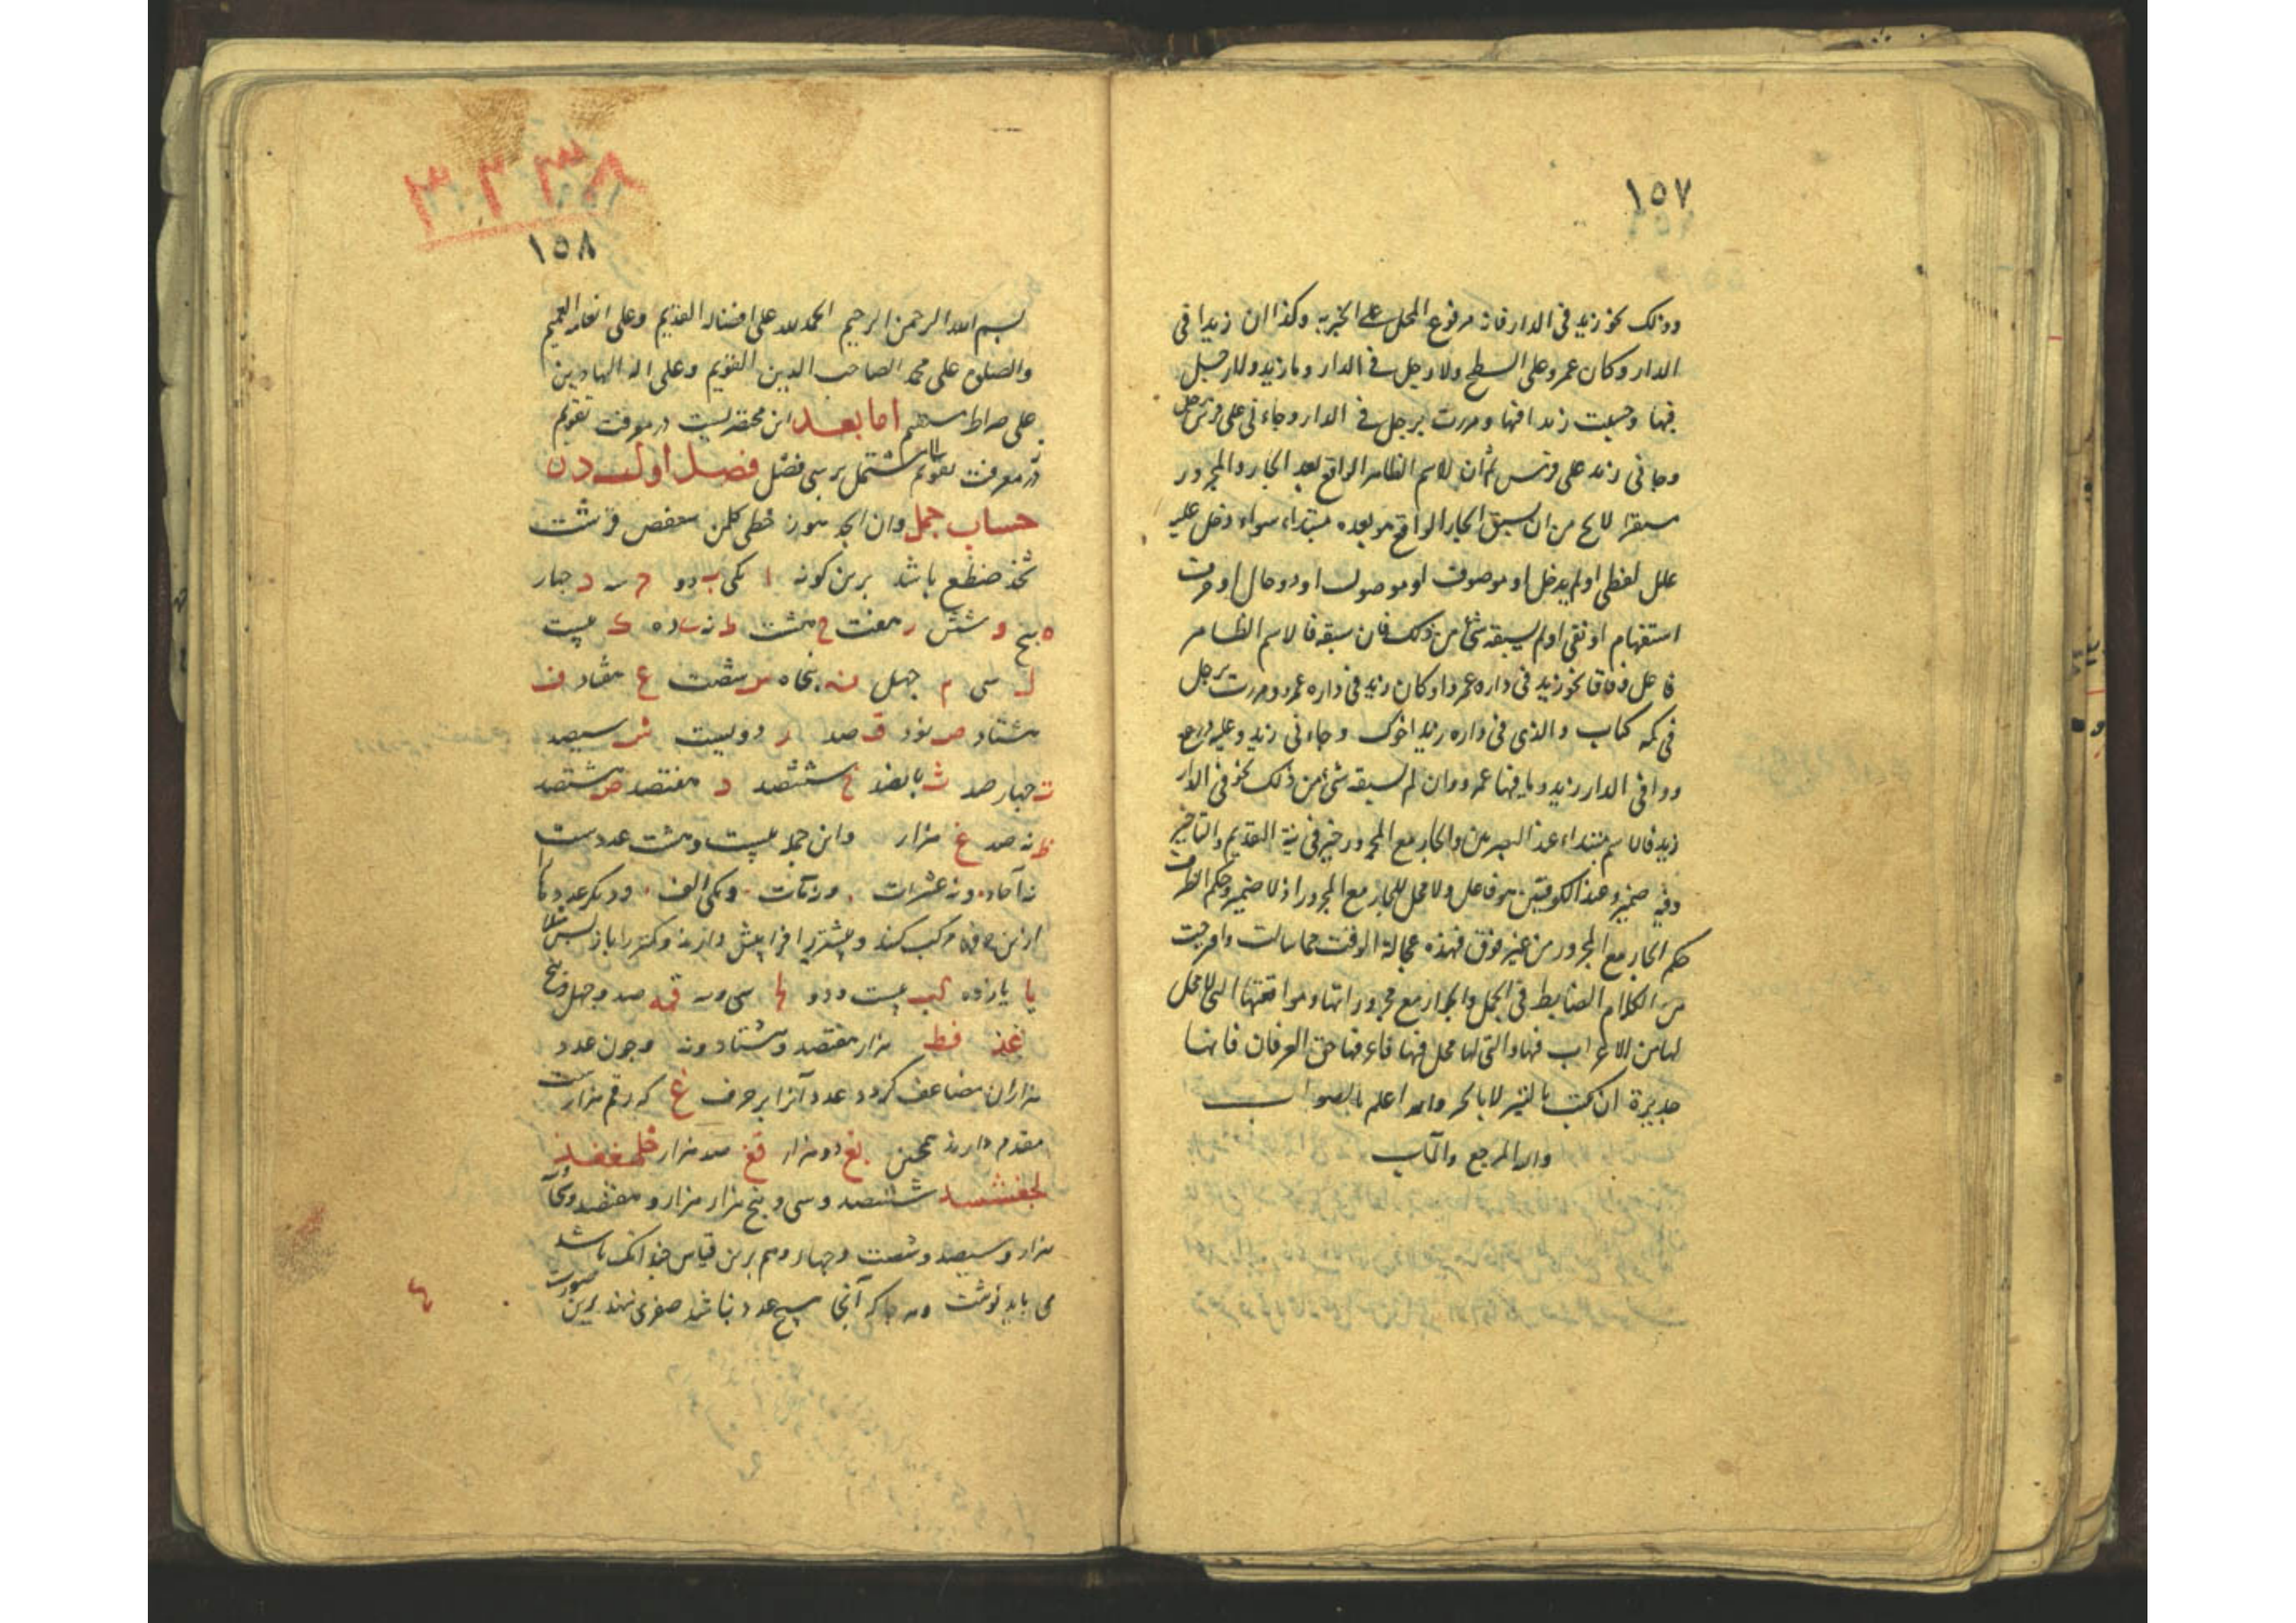 ١٥٧
وذلك نحو زيد في الدار فانه مرفوع المحل على الخبريه وكذا ان زيدا في
الدار وكان عمرو على السطح ولا رجل في الدار وما زيد ولا رجل
فيها وحسبت زيدا فيها ومررت برجل في الدار وجاءني على فرس رجل
وجاءني زيد على فرس ثم ان الاسم الظاهر الواقع بعد الجار والمجرور
مستقرا لا يخ من ان يسبق الجار الواقع هو بعده مبتداء سواء دخل عليه
عامل لفظي او لم يدخل او موصوف او موصول او ذو حال او حرف
استفهام او نفي او لم يسبقه شئ من ذلك فان سبقه فالاسم الظاهر
فاعل وفاقا نحو زيد في داره عمرو او كان زيد في داره عمرو ومررت برجل
في كمه كتاب والذي في داره زيد اخوك وجاءني زيد وعليه درع
و افي الدار زيد وما فيها عمرو وان لم يسبقه شئ من ذلك نحو في الدار
زيد فالاسم مبتداء عند البصريين والجار مع المجرور خبر في نية التقديم والتاخير
وفيه ضمير وعند الكوفيين هو فاعل ولا محل للجار مع المجرور اذ لا ضمير وحكم الظرف
حكم الجار مع المجرور من غير فرق فهذه عجالة الوقت مما سالت واقترحت
من الكلام الضابط في الجمل والجوار مع مجروراتها ومواقعها التي لا محل
لها من الاعراب فيها والتي لها محل فيها حق العرفان فانها
جديرة ان تكتب بالتبر لا بالحبر والله اعلم بالصواب
واليه المرجع والمآب
٣٣٣٨
١٥٨
بسم الله الرحمن الرحيم الحمد لله على افضاله القديم وعلى انعامه العميم
والصلوة على محمد الصاحب الدين القويم وعلى اله الهادين
على صراط مستقيم اما بعد اين مختصريست در معرفت تقويم
در معرفت تقويم مشتمل بر سى فصل فصل اول در
حساب جمل وان ابجد هوز حطى كلمن سعفص قرشت
ثخذ ضظغ باشد برين كونه ا يكى ب دو ج سه د جهار
ه پنج و شش ز هفت ح هشت ط نه ى ده ك بيست
ل سى م جهل ن پنجاه س شصت ع هفتاد ف
هشتاد ص نود ق صد ر دويست ش سيصد
ت جهار صد ث پانصد خ ششصد ذ هفتصد ض هشتصد
ظ نه صد غ هزار واين جمله بيست وهشت عددست
نه آحاد ونه عشرات ونه مآت ويكى الف وديكر عددها
از اين حروف مركب كنند و بيشتر را فرا پيش دارند وكمتر را باز پس مثلا
يا يازده كب بيست ودو لج سى وسه قمه صد وجهل وپنج
غذ فط هزار هفتصد وهشتاد ونه وجون عدد
هزاران مضاعف كردد عدد آنرا بر حرف غ كه رقم هزارست
مقدم دارند همچنين بغ دو هزار قغ صد هزار
ششصد وسى وپنج هزار هزار و هفتصد
هزار وسيصد وشصت وجهار وهم برين قياس جندانكه باشد
مى بايد نوشت وهر جا كه آنجا هيچ عدد نباشد صفرى نهند برين صورت
٤